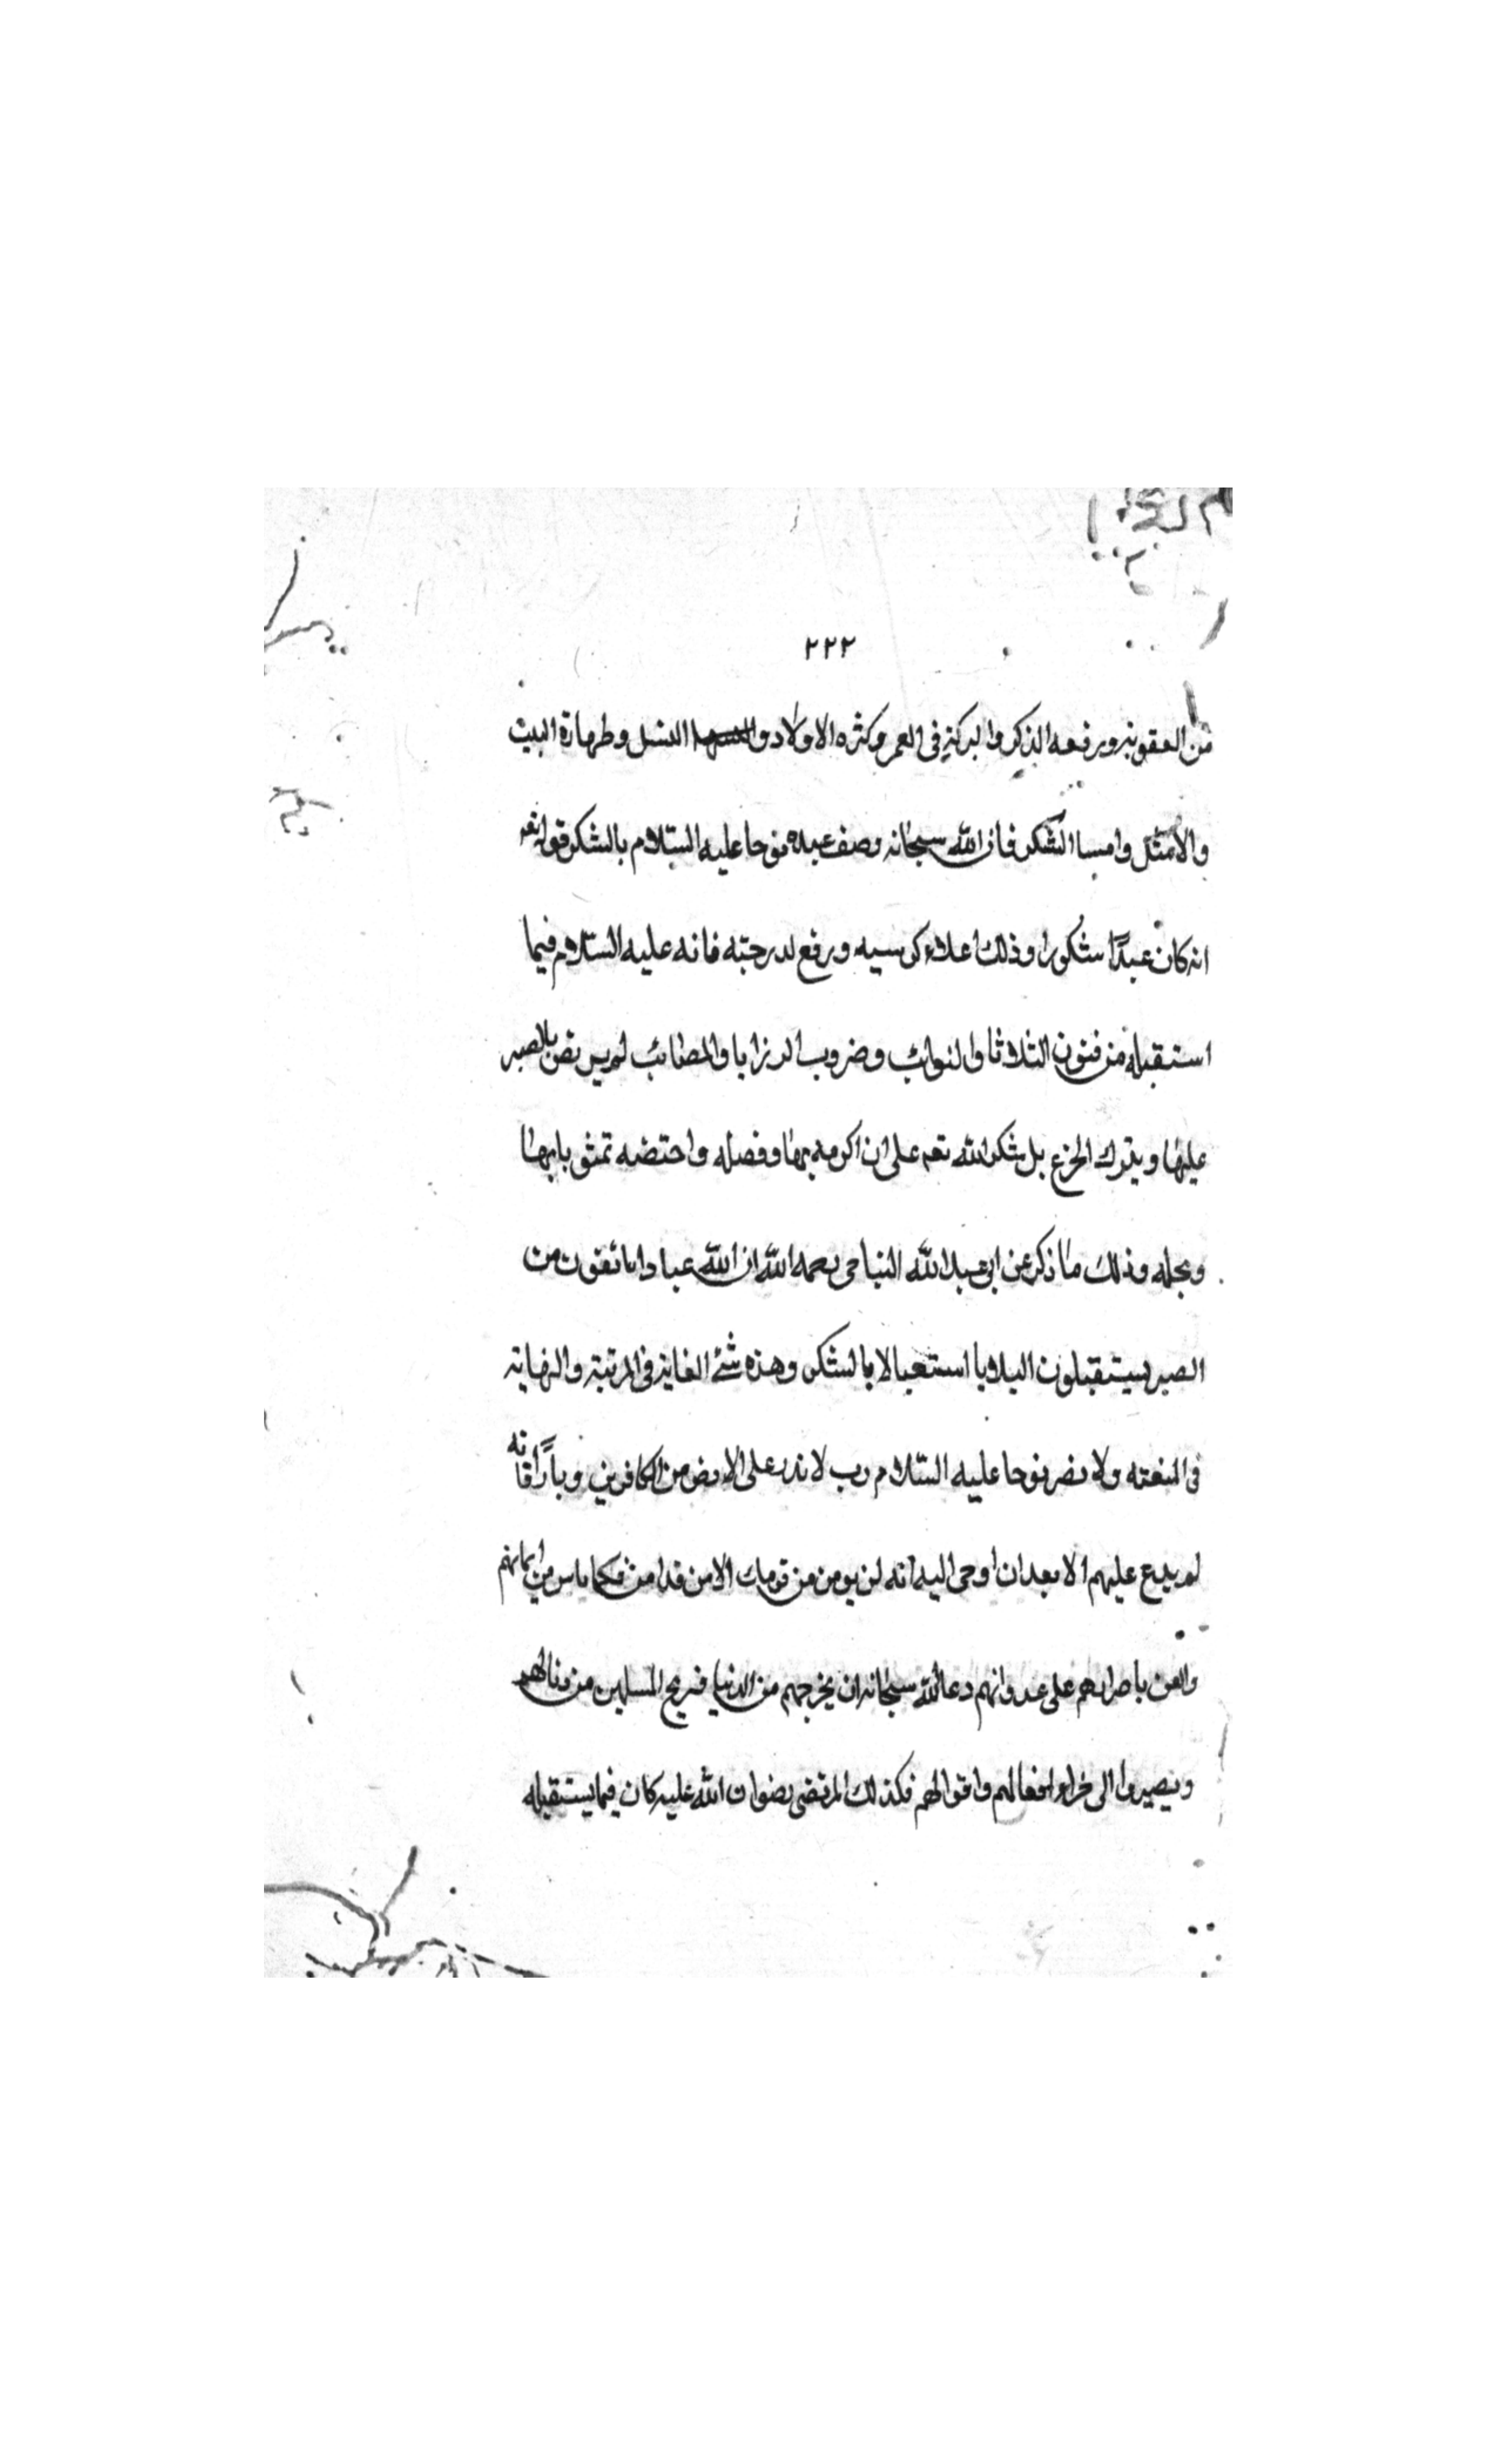 ٢٢٢
من العقوبة ورفعه الذكر والبركة في العمر وكثره الاولاد و النسل وطهارة البيت
والامثل واما الشكر فان الله سبحانه وصف عبده نوحا عليه السلام بالشكر قوله تعم
انه كان عبدًا شكورا وذلك اعلاء كرسيه ورفع لدرجته فانه عليه السلام فيما
استقبله من فنون والنوائب وضروب الرزايا والمصائب لم يرتض بالصبر
عليها ويترك الجزع بل شكر الله تعم على ان اكرمه بها وفضله واختصه بابها
وبجله وذلك ما ذكر عن ابي عبد الله النباحى رحمه الله ان الله عبادا من
الصبر يستقبلون البلايا بالشكر وهذه شئ الغاية في المرتبة والنهاية
في ولا نوحا عليه السلام رب لا تذر على الارض من الكافرين
لم يدع عليهم الا بعد ان اوحى اليه انه لن يومن من قومك الا من قد امن من ايمانهم
باصرارهم على عدوانهم دعا الله سبحانه ان يخرجهم من الدنيا المسلمين من
ويصيروا الى افعالهم واقوالهم فكذلك المرتضى رضوان الله عليه كان فيما يستقبله